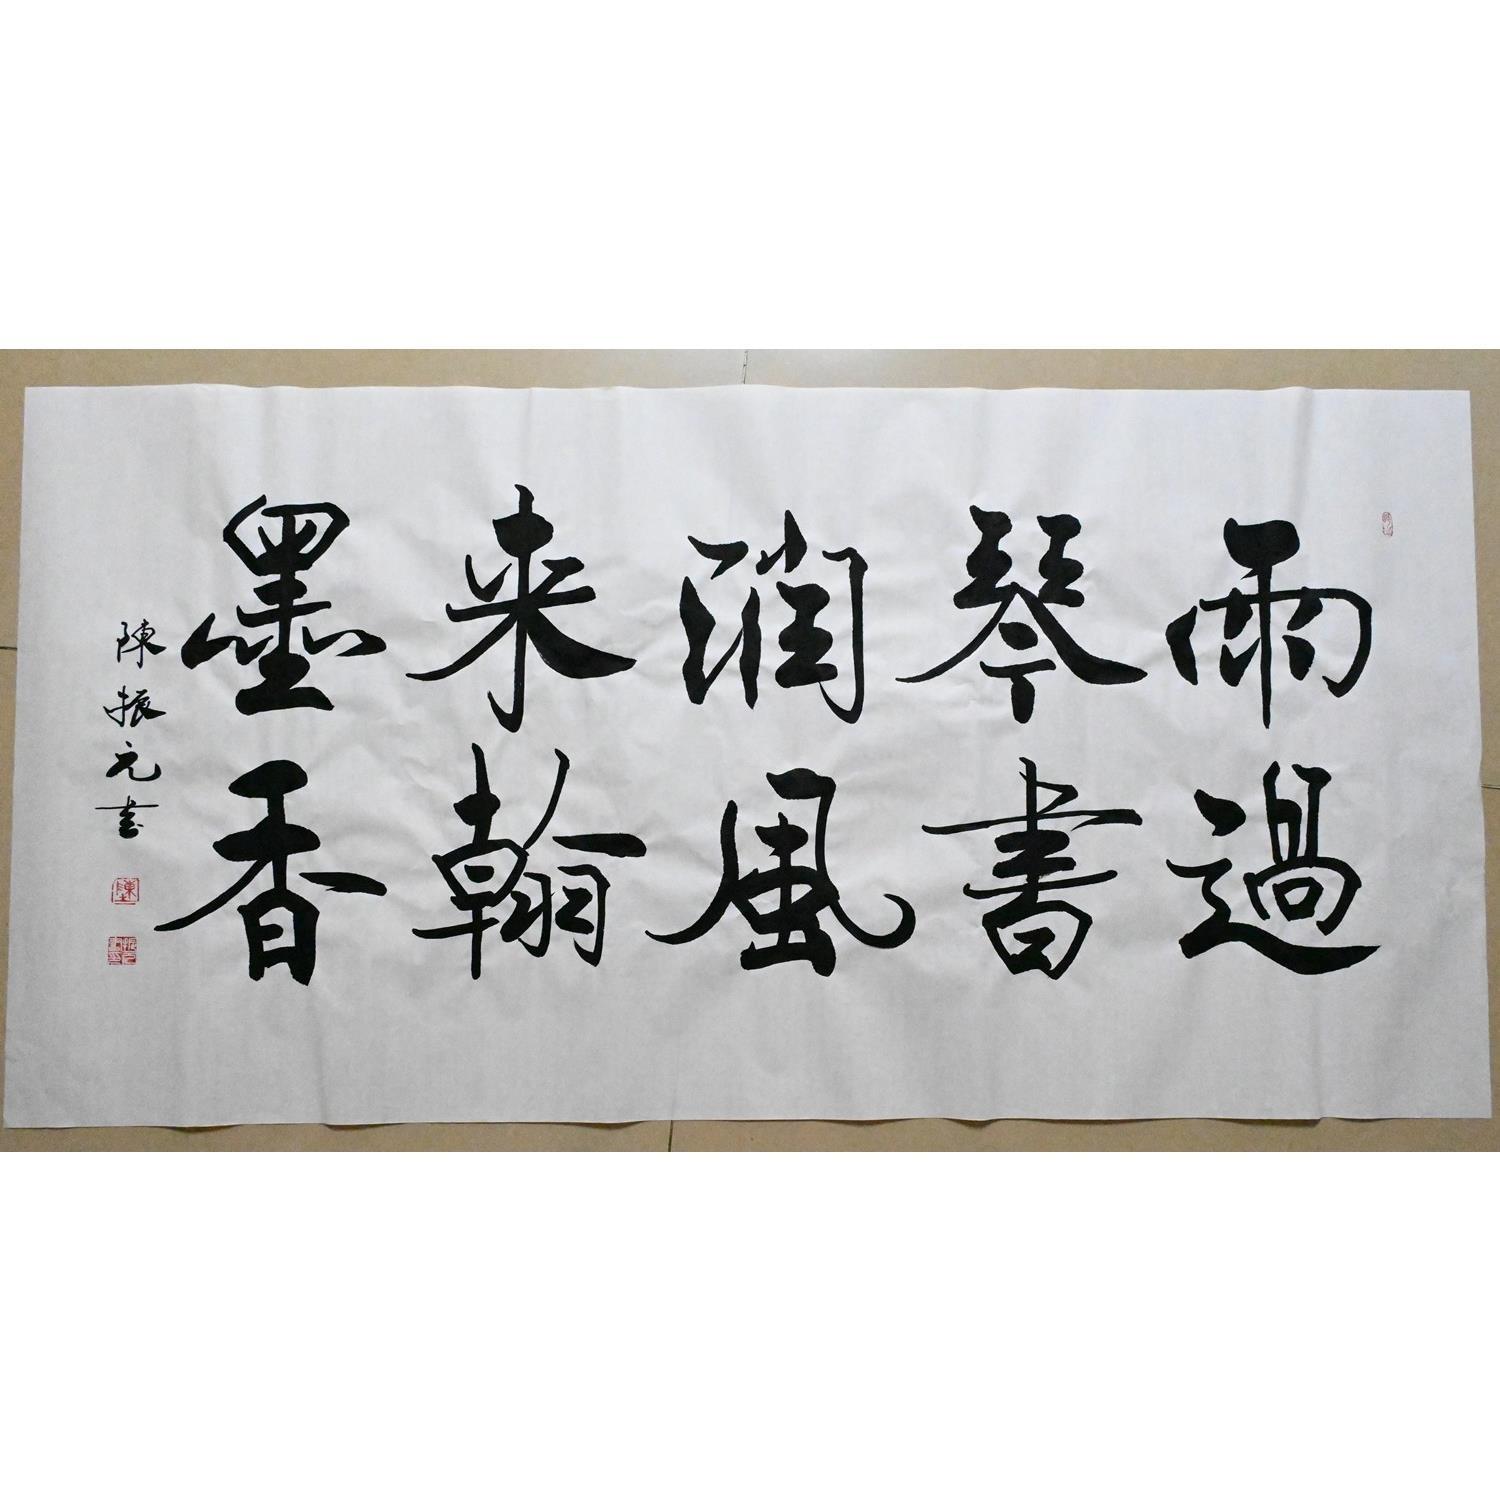 雨過
琴書
潤風
来翰
墨香
陳振元书